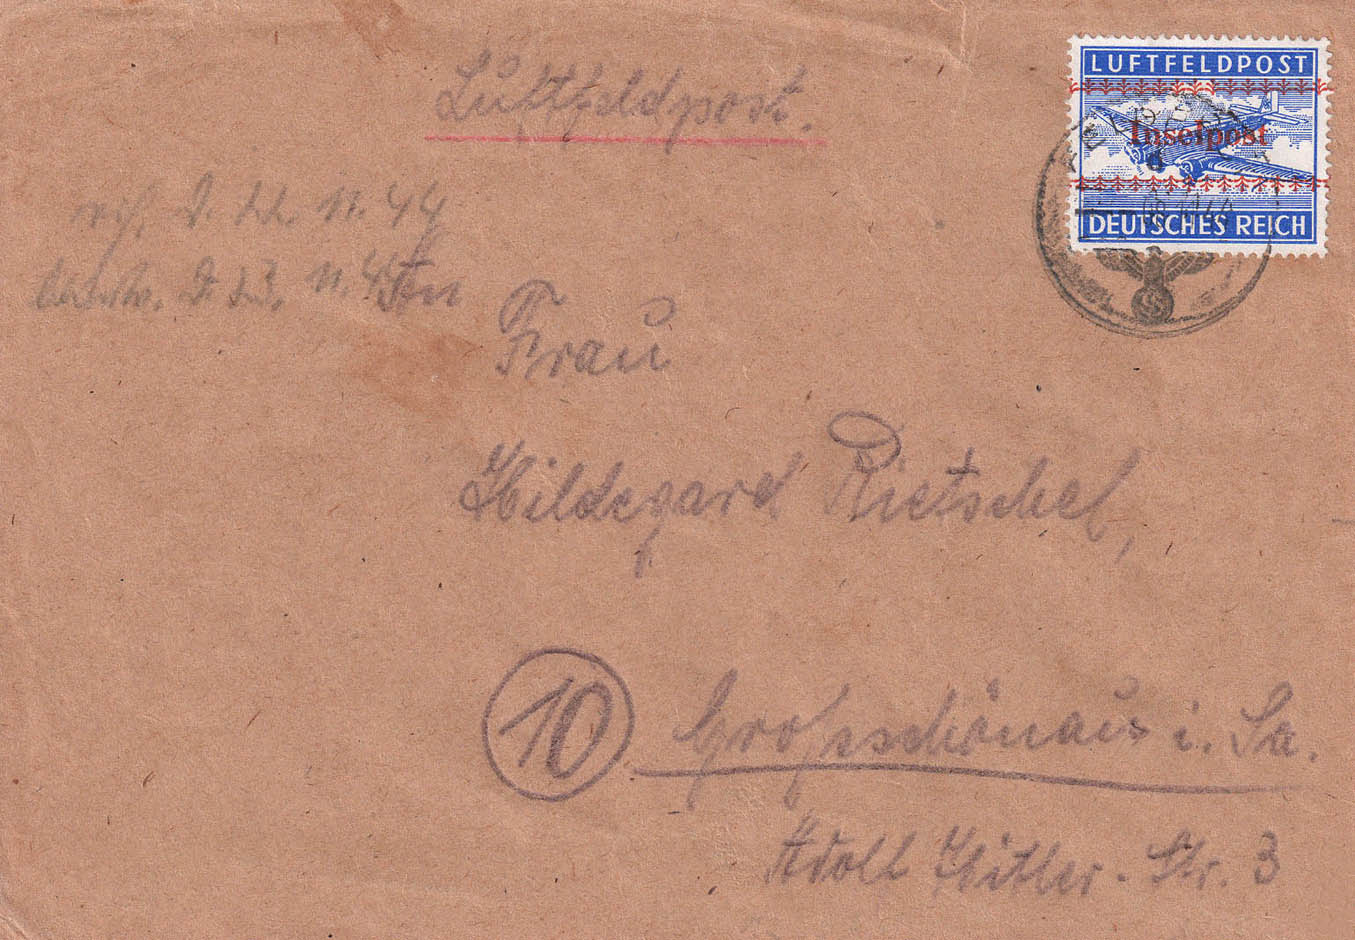 Luftfeldpost.
LUFTFELDPOST
Inselpost
DEUTSCHES REICH
An
Frau
Hildegard Rietschel,
10 Grossschönau i. Sa.
Adolf Hitler-Str. 3